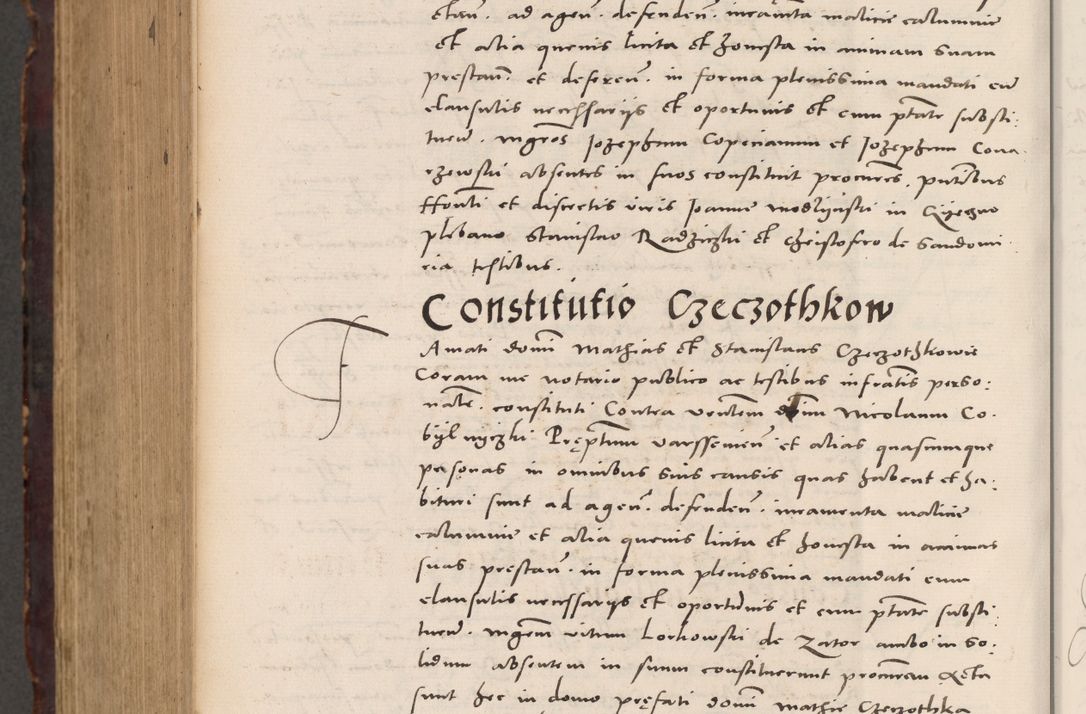 ctan̄. ad agen̄. defenden̄. iuramta malicie calumnie
et alia quevis licita et honesta in animam suam
prestan̄. et deferen̄. in forma plenissima mandati cū
clausulis necessariis et oportunis et cum ptāte substi:
tuen̄. mgros̄ Jozephum Copecianum et Jozephum Cona
rzewski absentes in suos constituit procures. putibus
ffonti et discretis viris Joanne modlyniski in
plebano Stanislao Radziczki et Christofero de Sandomi
ria testibus.
Constitutio Czeczothkow
Amati domī Mathias et Stanislaus Czeczothkowie
Coram me notario publico ac testibus infratis perso:
nalr. constituti Contra ventem dnum Nicolaum Co.
bylniczki Preptum varssevien̄ et alias quascumque
personas in omnibus suis causis quas habent et ha:
bituri sunt ad agen̄. defenden̄. iuramenta malicie
calumnie et alia quevis licita et honesta in animas
suas prestan̄. in forma plenissima mandati cum
clausulis necessariis et oportunis et cum ptāte substi
tuen̄. mgrum vitum Lorkowski de Zator ambo in so:
lidum absentem in suum constituerunt procurem Acta
sunt hec in domo prefati domī Mathie Czeczothka